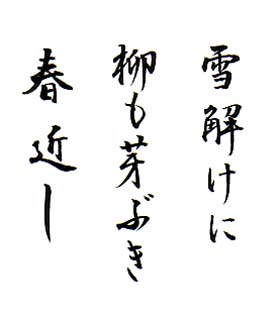 雪解けに
柳も芽ぶき
春近し